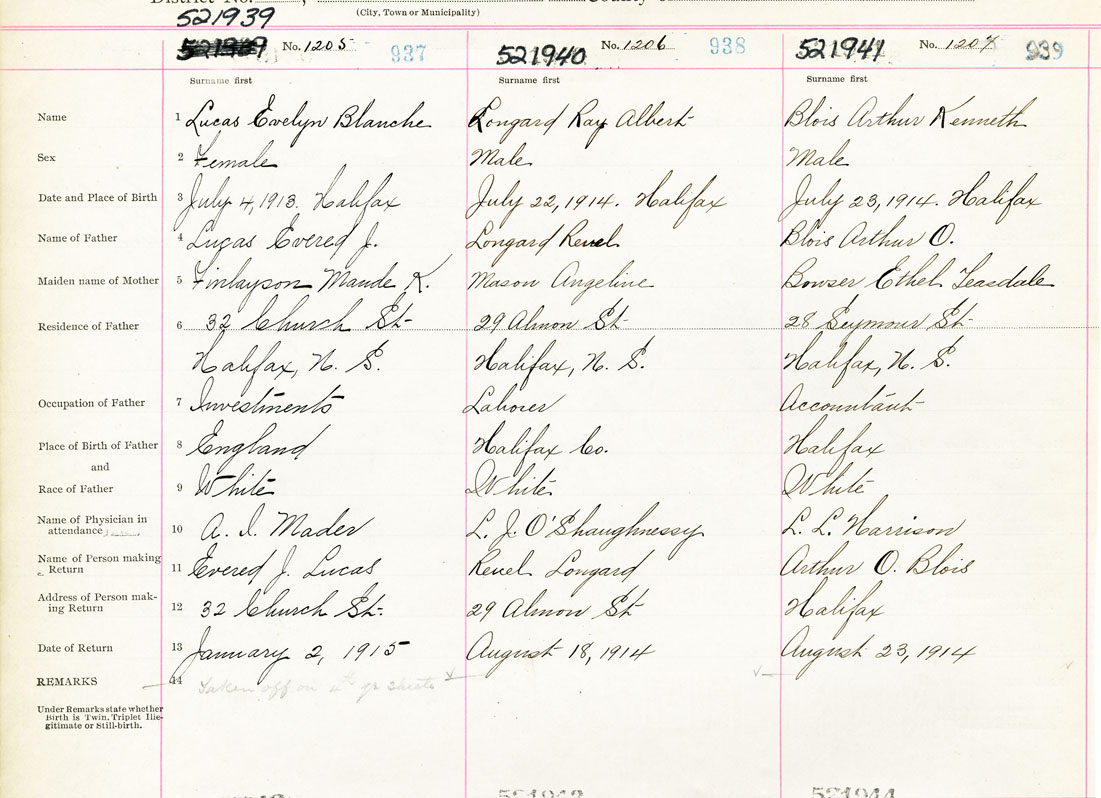 (City, Town or Municipality)
521939
No. 1205 937
521940 No. 1206 938
521941 No. 1207 939
Surname first Surname first Surname first
Name 1 Lucas Evelyn Blanche Longard Ray Albert Blois Arthur Kenneth
Sex 2 Female Male Male
Date and Place of Birth 3 July 4, 1913. Halifax July 22, 1914. Halifax July 23, 1914. Halifax
Name of Father 4 Lucas Evered J. Longard Reuel Blois Arthur O.
Maiden name of Mother 5 Finlayson Maude K. Mason Angeline Bowser Ethel Teasdale
Residence of Father 6 32 Church St. 29 Almon St. 28 Seymour St.
Halifax, N. S. Halifax, N. S. Halifax, N. S.
Occupation of Father 7 Investments Laborer Accountant
Place of Birth of Father 8 England Halifax Co. Halifax
and
Race of Father 9 White White White
Name of Physician in attendance 10 A. I. Mader L. J. O'Shaughnessy L. L. Harrison
Name of Person making Return 11 Evered J. Lucas Reuel Longard Arthur O. Blois
Address of Person mak-
ing Return 12 32 Church St. 29 Almon St. Halifax
Date of Return 13 January 2, 1915 August 18, 1914 August 23, 1914
REMARKS 14 Taken off on 4th qr sheets
Under Remarks state whether
Birth is Twin, Triplet Ille-
gitimate or Still-birth.